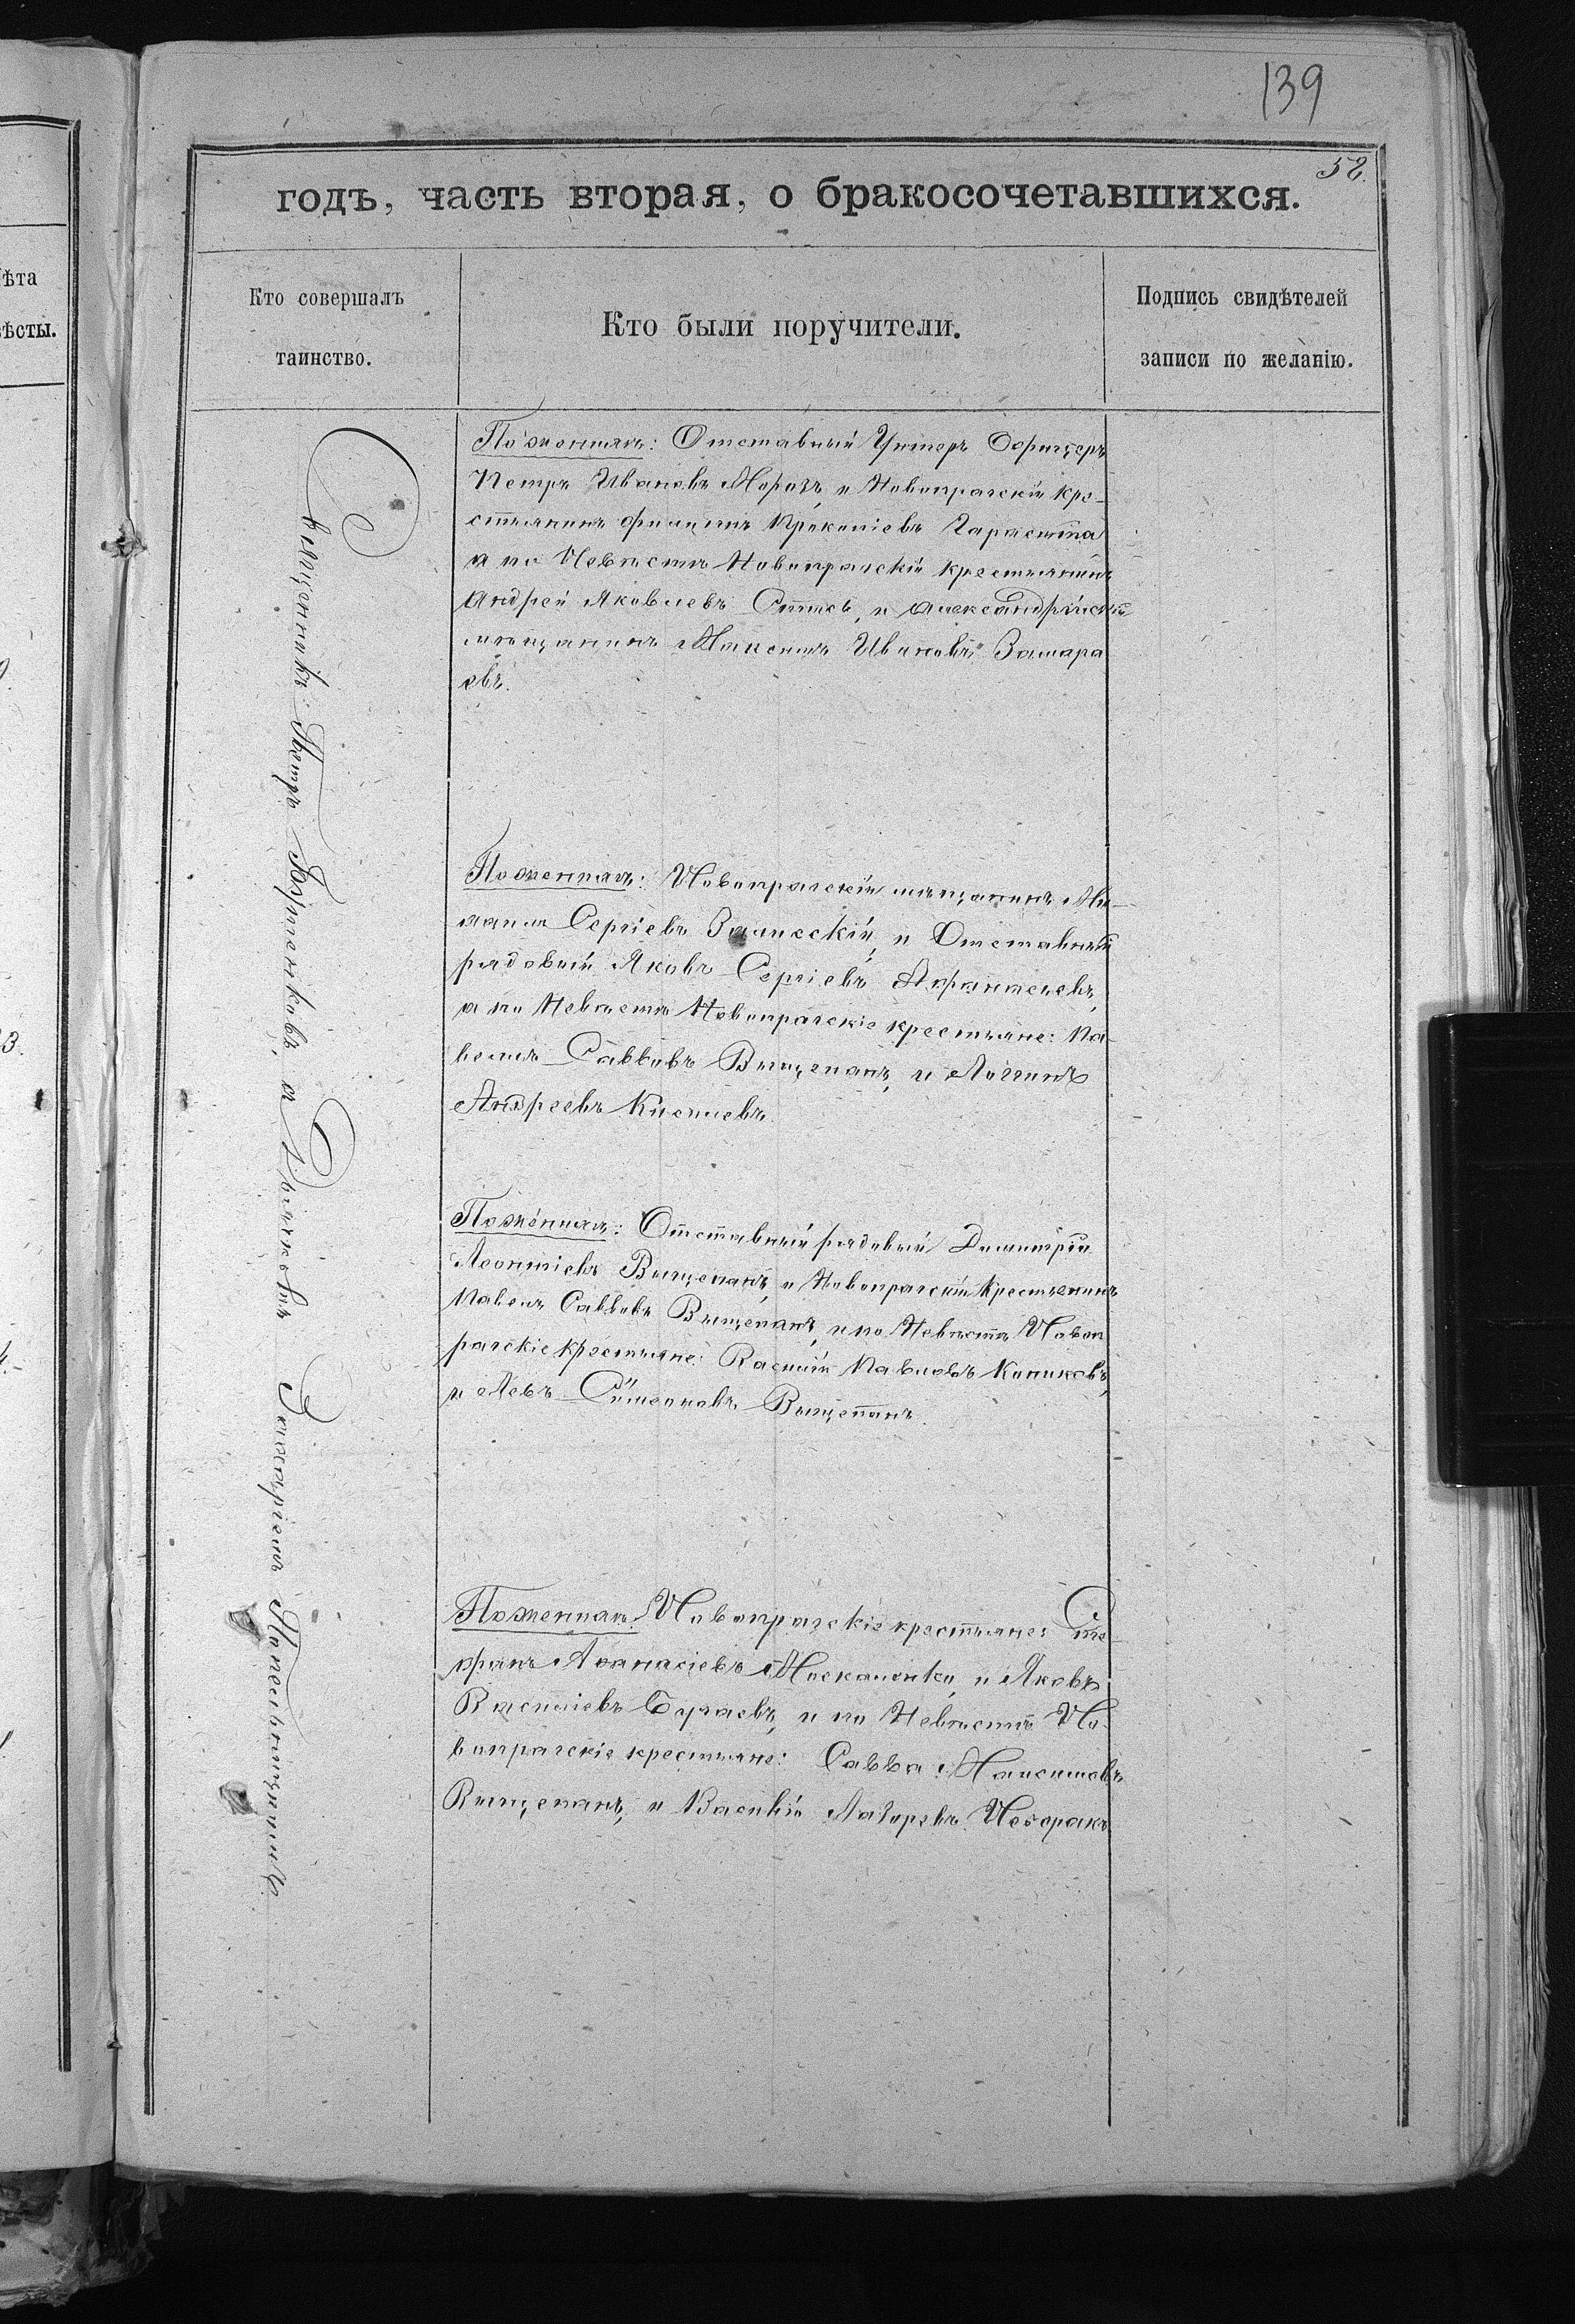 139
52.
годъ, часть вторая, о бракосочетавшихся.
ѣта
ѣсты.
Кто совершалъ
таинство.
Кто были поручители.
Подпись свидѣтелей
записи по желанію.
Священникъ Петръ Бутенковъ, а Дьякономъ Захаріемъ
По женихѣ: Отставный Унтеръ Офицеръ
Петръ Ивановъ Морозъ, и Новопражскій кре-
стьянинъ Филиппъ Прокопіевъ
а по Невѣстѣ Новопражскій крестьянинъ
Андрей Яковлевъ и Александрійскій
мѣщанинъ Максимъ Ивановъ Замара
евъ.
По женихѣ: Новопражскій мѣщанинъ Ми-
хаилъ Сергіевъ и Отставный
рядовый Яковъ Сергіевъ Афанасьевъ,
а по Невѣстѣ Новопражскіе крестьяне: Па-
велъ Саввовъ Вищепанъ, и Логинъ
Андреевъ Киселевъ.
По женихѣ: Отставный рядовый Димитрій
Леонтіевъ Вищепанъ, и Новопражскій Крестьянинъ
Павелъ Саввовъ Вищепанъ, и по Невѣстѣ Новоп
ражскіе крестьяне: Василій Павловъ
и Левъ Симеоновъ Вищепанъ.
По женихѣ: Новопражскіе крестьяне: Сте-
фанъ Аѳанасіевъ Москаленко, и Яковъ
Василіевъ Бугаевъ, и по Невѣстѣ Но-
вопражскіе крестьяне: Савва Максимовъ
Вищепанъ, и Василій Лазаревъ